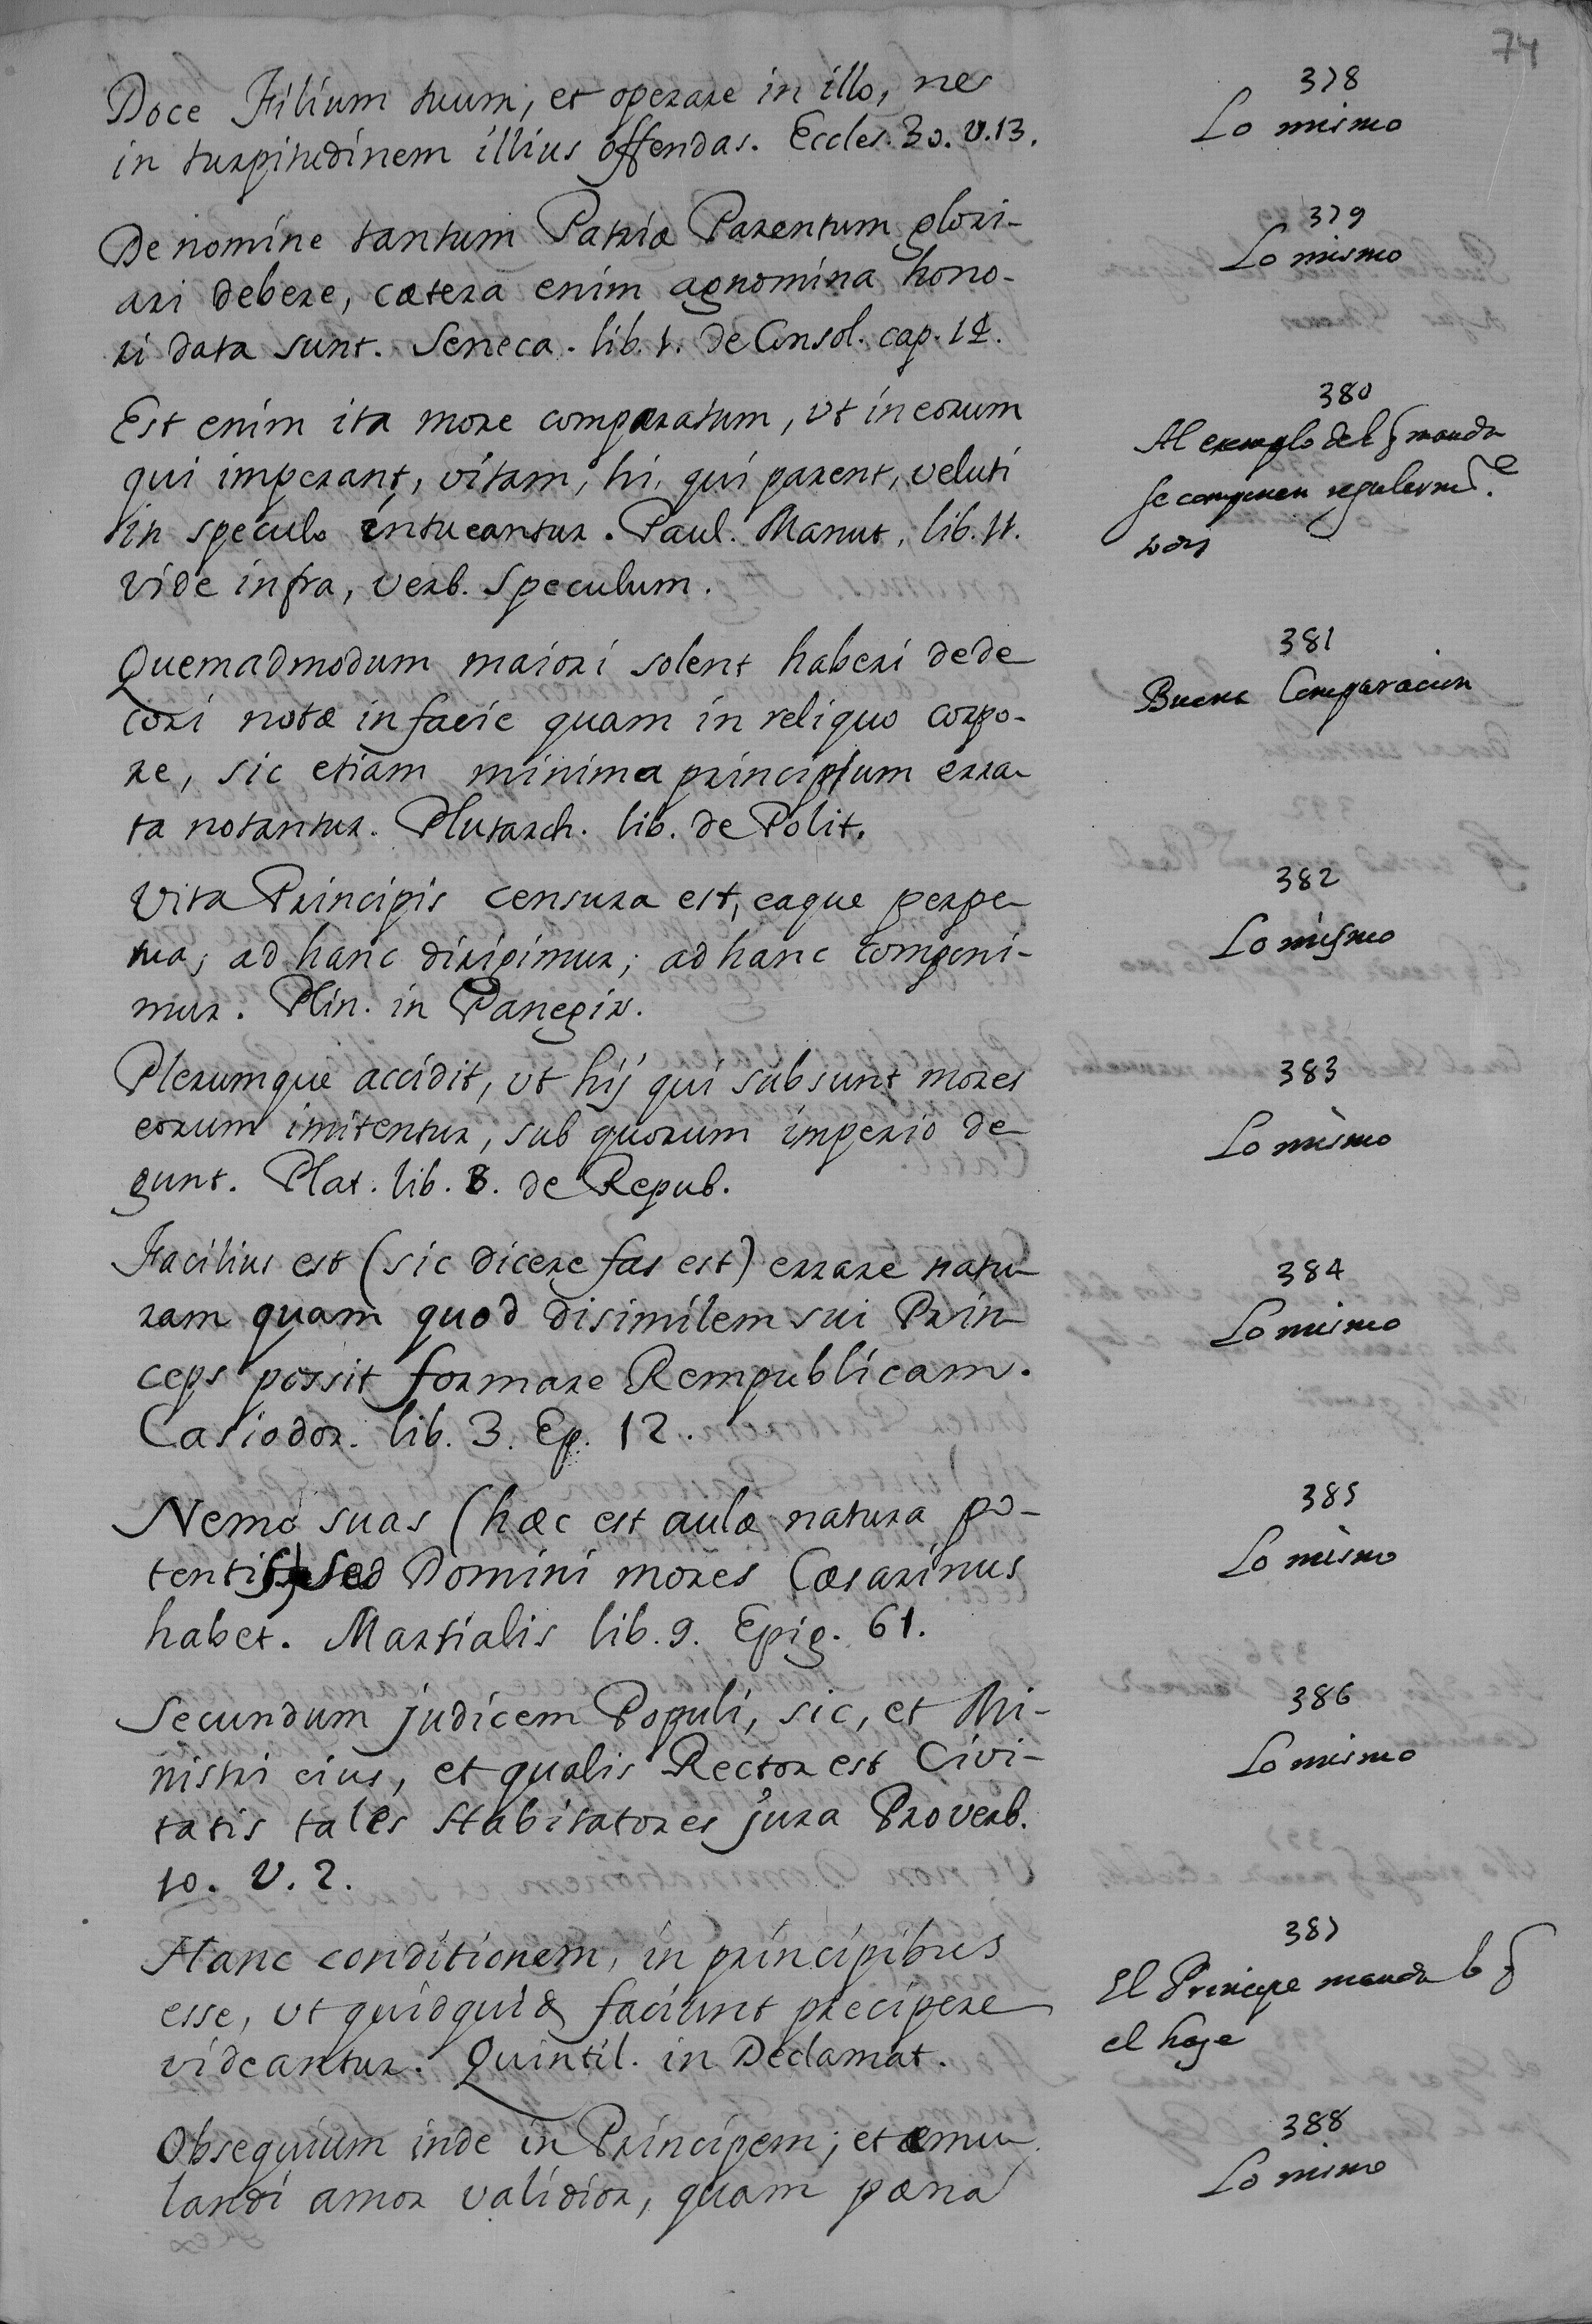 74
Doce Filium tuum, et operare in illo, nes
in turpitudinem illius offendas. Eccles. 30. V. 13.
378
Lo mismo
De nomine tantum Patriæ Parentum glori-
ari debere, cætera enim agnomina hono-
ri data sunt. Seneca. lib. 1. de Consol. cap. 14.
379
Lo mismo
Est enim ita more comparatum, ut in eorum
qui imperant, vitam, hi, qui parent, veluti
in speculo intueantur. Paul. Manut, lib. 11.
vide infra, verb. Speculum.
380
Al exemplo del q manda
se componen regularm.e
todos
Quemadmodum maiori solent haberi dede
cori notæ in facie quam in reliquo corpo-
re, sic etiam minima principium erra-
ta notantur. Plutarch. lib. de Polit.
381
Buena Comparacion
Vita Principis censura est, eaque perpe-
tua, ad hanc dirigimur, ad hanc componi-
mur. Plin. in Panegir.
382
Lo mismo
Plerumque accidit, ut hij qui subsunt mores
eorum imitentur, sub quorum imperio de-
gunt. Plat. lib. 8. de Repub.
383
Lo mismo
Facilius est (sic dicere fas est) errare natu-
ram quam quod disimilem sui Prin-
ceps possit formare Rempublicam.
Casiodor. lib. 3. Ep. 12.
384
Lo mismo
Nemo suas (hæc est aulæ natura po-
tentis) sed Domini mores Cæsarinus
habet. Martialis lib. 9. Epig. 61.
385
Lo mismo
Secundum judicem Populi, sic, et Mi-
nistri eius, et qualis Rector est Civi-
tatis tales Habitatores jura Proverb.
10. V. 2.
386
Lo mismo
Hanc conditionem, in principibus
esse, ut quidquid faciunt precipere
videantur. Quintil. in Declamat.
387
El Principe manda lo q
el haze
Obsequium inde in Principem, et æmu-
landi amor validior, quam pœna
388
Lo mismo